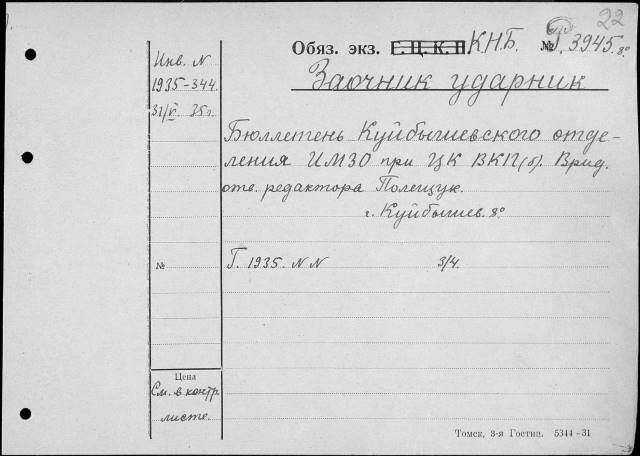 22
Обяз. экз. Г. Ц. К. П. К.Н.Б. № 3945. 8°
Заочник ударник
Инв. N
1935-344.
31/V 35 г.
Бюллетень Куйбышевского отде-
ления ИМЗО при ЦК ВКП(б). Врид.
отв. редактора Полещук.
г. Куйбышев. 8°
№
Г. 1935. N N 3/4.
Цена
См. в контр.
листе.
Томск, 3-я Гостип. 5344-31